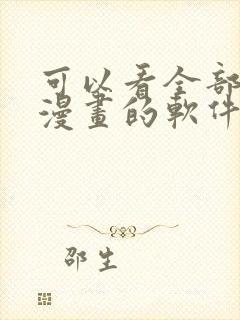 可以看全部
漫畫的軟件
邵生